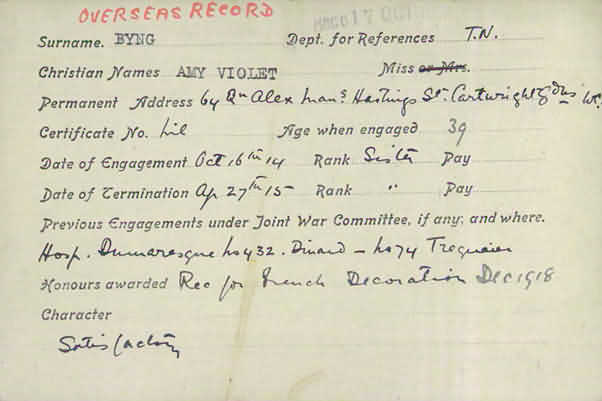 OVERSEAS RECORD
17 OCT
Surname. BYNG Dept. for References T.N.
Christian Names AMY VIOLET Miss or Mrs.
Permanent Address 64 Qn Alex Mans. Hastings St. Cartwright Gdns W.C.
Certificate No. Nil Age when engaged 39
Date of Engagement Oct 16th 14 Rank Sister Pay
Date of Termination Ap 27th 15 Rank " Pay
Previous Engagements under Joint War Committee, if any, and where.
Hosp. Dumaresque No 432. Dinard – No 74 Treguier
Honours awarded Rec for French Decoration Dec 1918
Character
Satisfactory